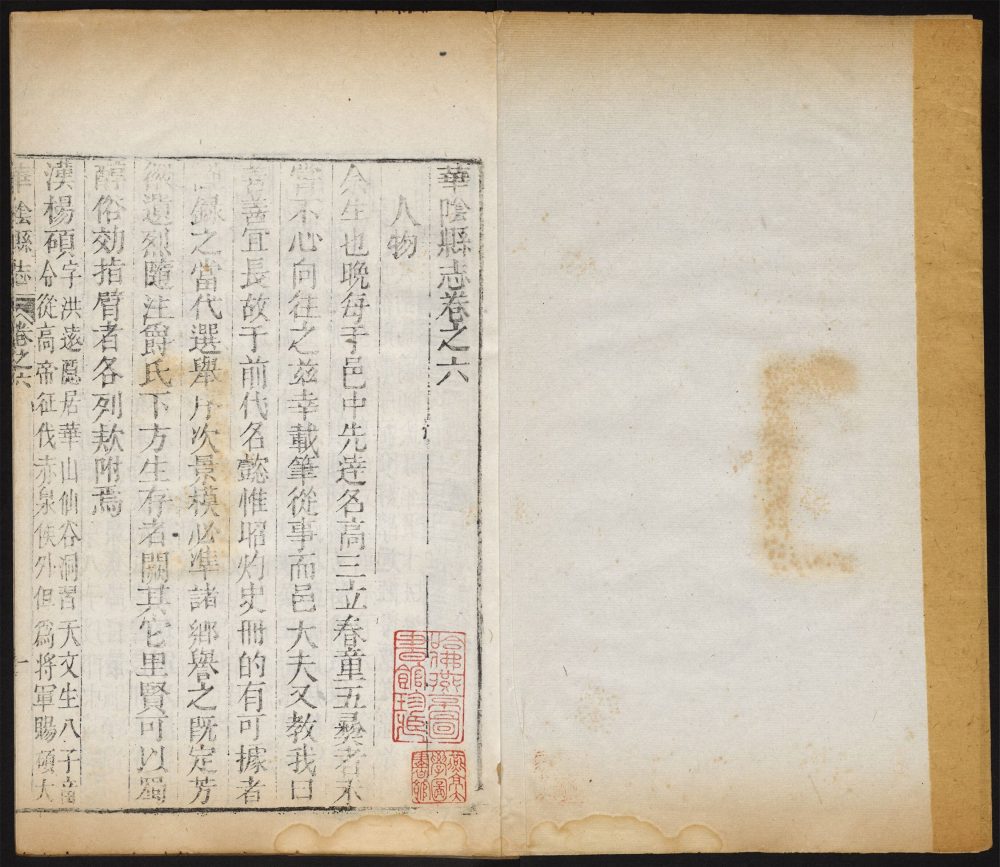 華陰縣志卷之六
人物
余生也晚每于邑中先逹名高三立春童五彛者未
嘗不心向往之兹幸載筆從事而邑大夫又教我曰
善善宜長故于前代名懿惟昭灼史冊的有可據者
録之當代選舉序次景模必準諸鄉譽之既定芳
徽遺烈隨注爵氏下方生存者闕其它里賢可以蠲
醇俗効指臂者各列欵附焉
漢楊碩字洪遠隱居華山仙谷洞習天文生八子
令從高帝征伐赤泉侯外但爲將軍賜碩大
華陰縣志 卷之六 一
哈佛燕京圖書館珍藏
燕京大學圖書館